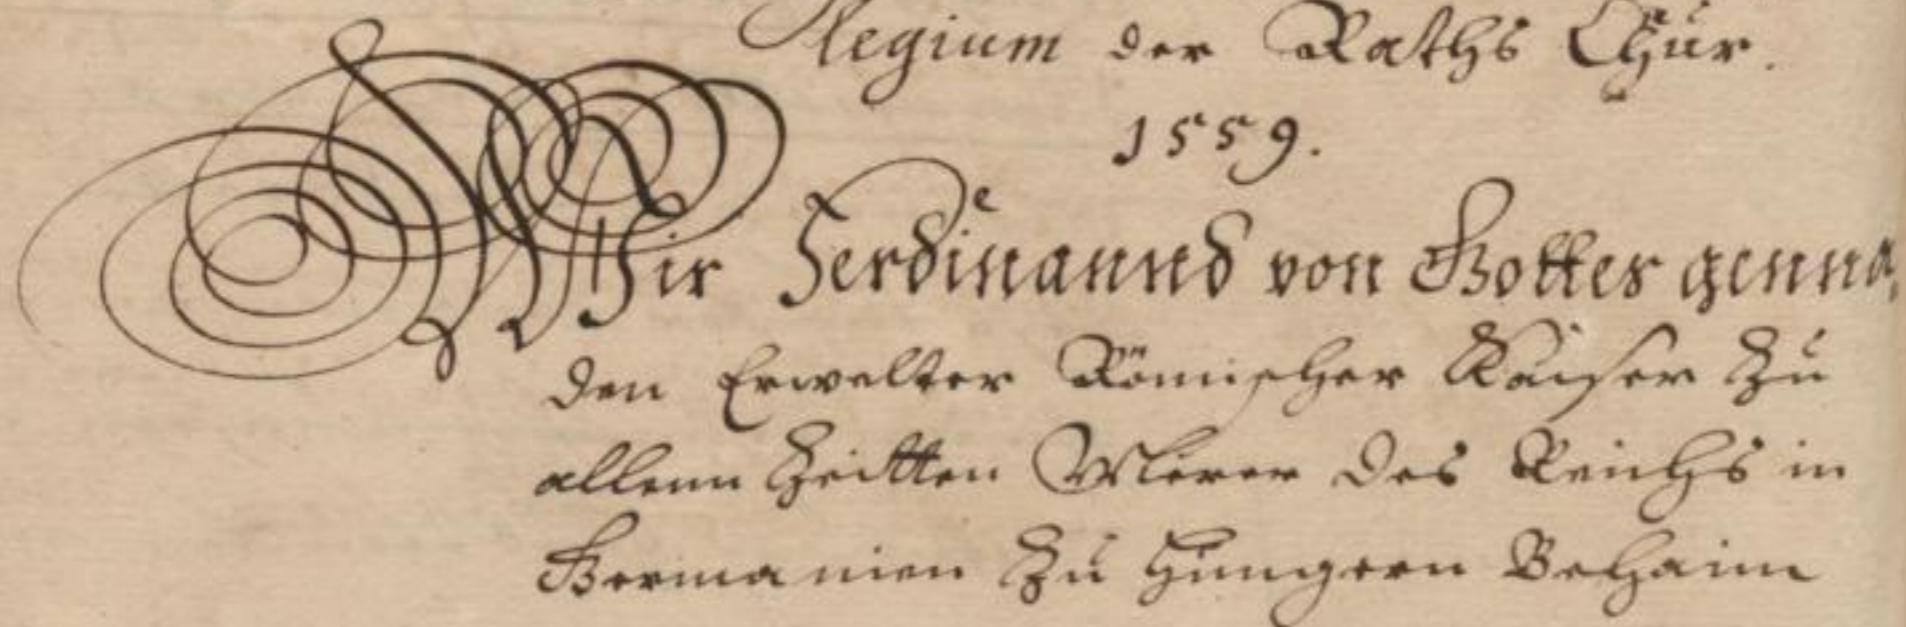 legium der Raths Chur.
1559.
Wir Ferdinannd von Gottes genna,
den Erwelter Römischer Kaiser zu
allenn Zeitten Merer des Reichs in
Germanien zu Hungern Behaim